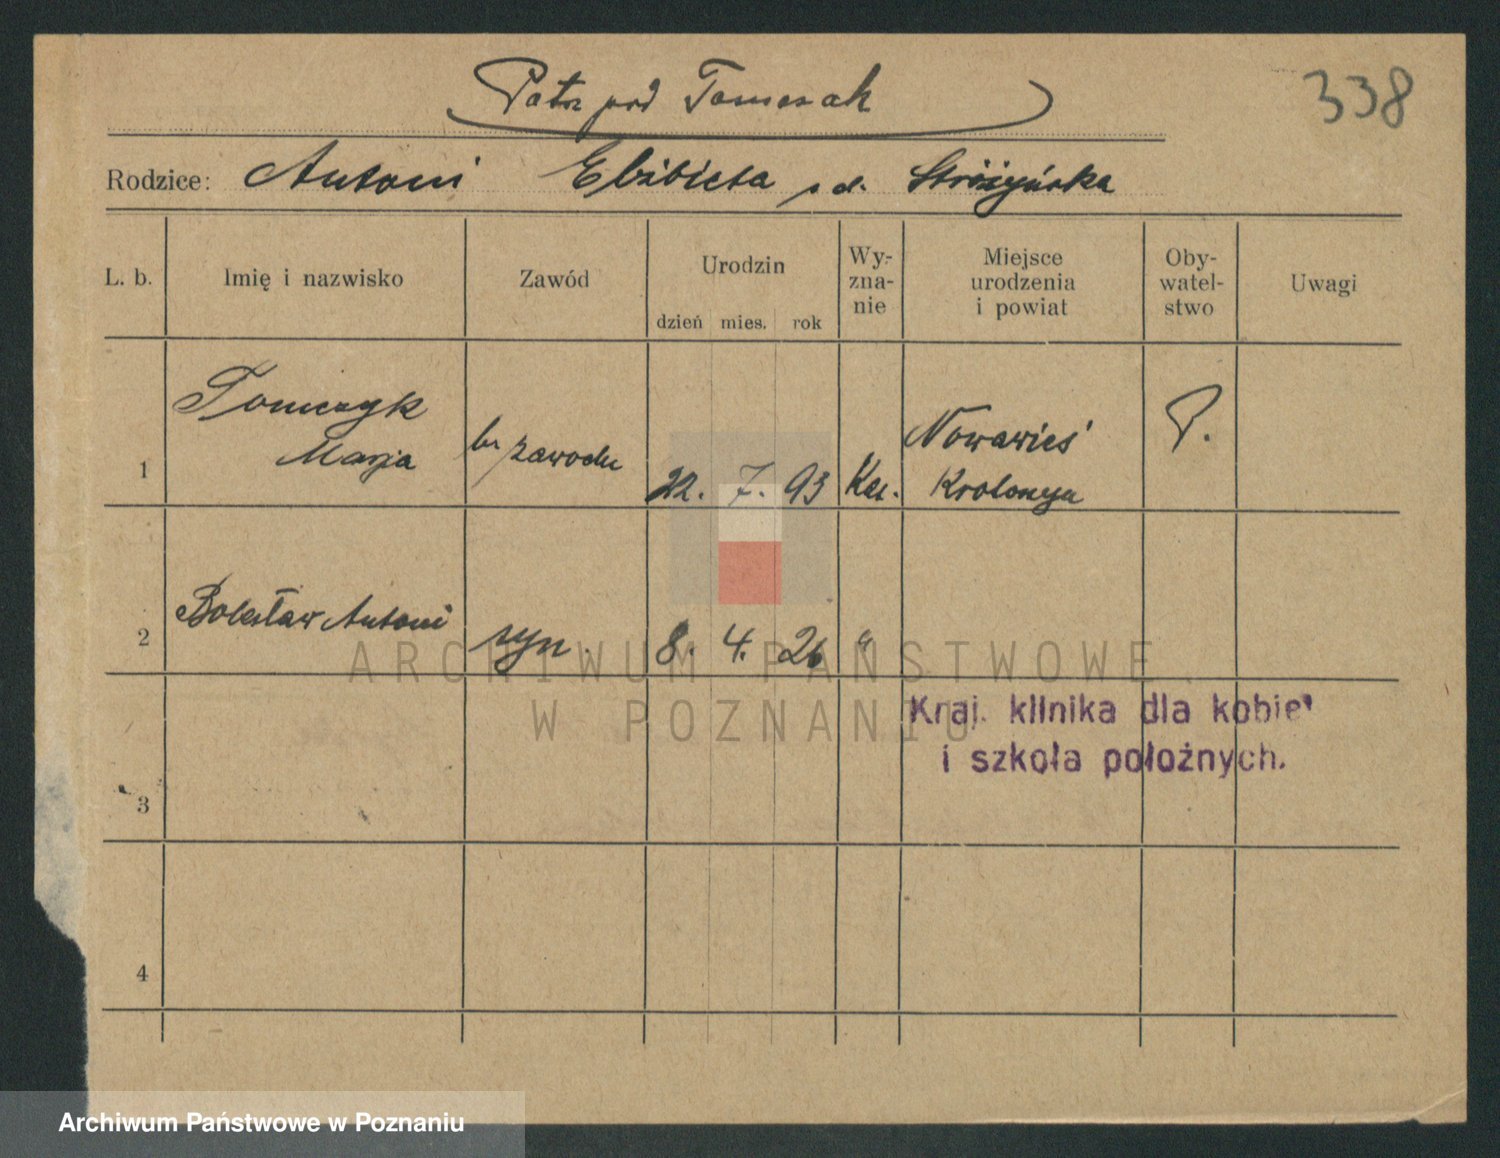 Patrz pod Tomczak
338
Rodzice: Antoni Elżbieta z d. Stróżyńska
L. b. Imię i nazwisko Zawód Urodzin Wy-zna-nie Miejsce urodzenia i powiat Oby-watel-stwo Uwagi
dzień mies. rok
Tomczyk Nowawieś P.
1 Marja bez zawodu 22. 7. 93 Kat. Krotoszyn
2 Bolesław Antoni syn. 8. 4. 26 "
ARCHIWUM PAŃSTWOWE
W POZNANIU
Kraj. klinika dla kobiet
i szkoła położnych.
3
4
Archiwum Państwowe w Poznaniu